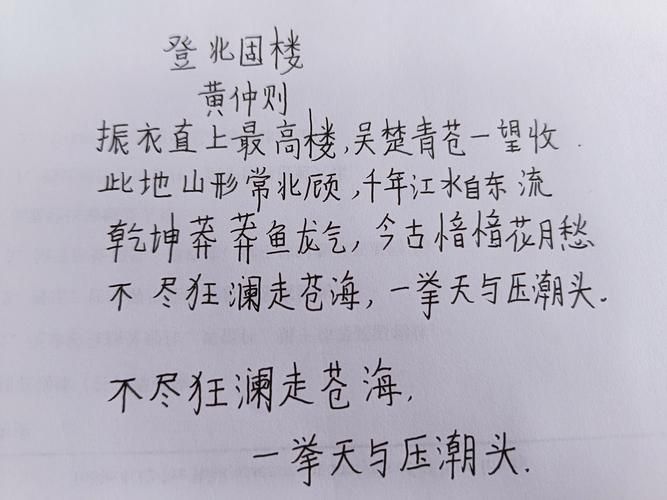 登北固楼
黄仲则
振衣直上最高楼,吴楚青苍一望收.
此地山形常北顾,千年江水自东流
乾坤莽莽鱼龙气,今古愔愔花月愁
不尽狂澜走苍海,一挙天与压潮头.
不尽狂澜走苍海,
一挙天与压潮头.